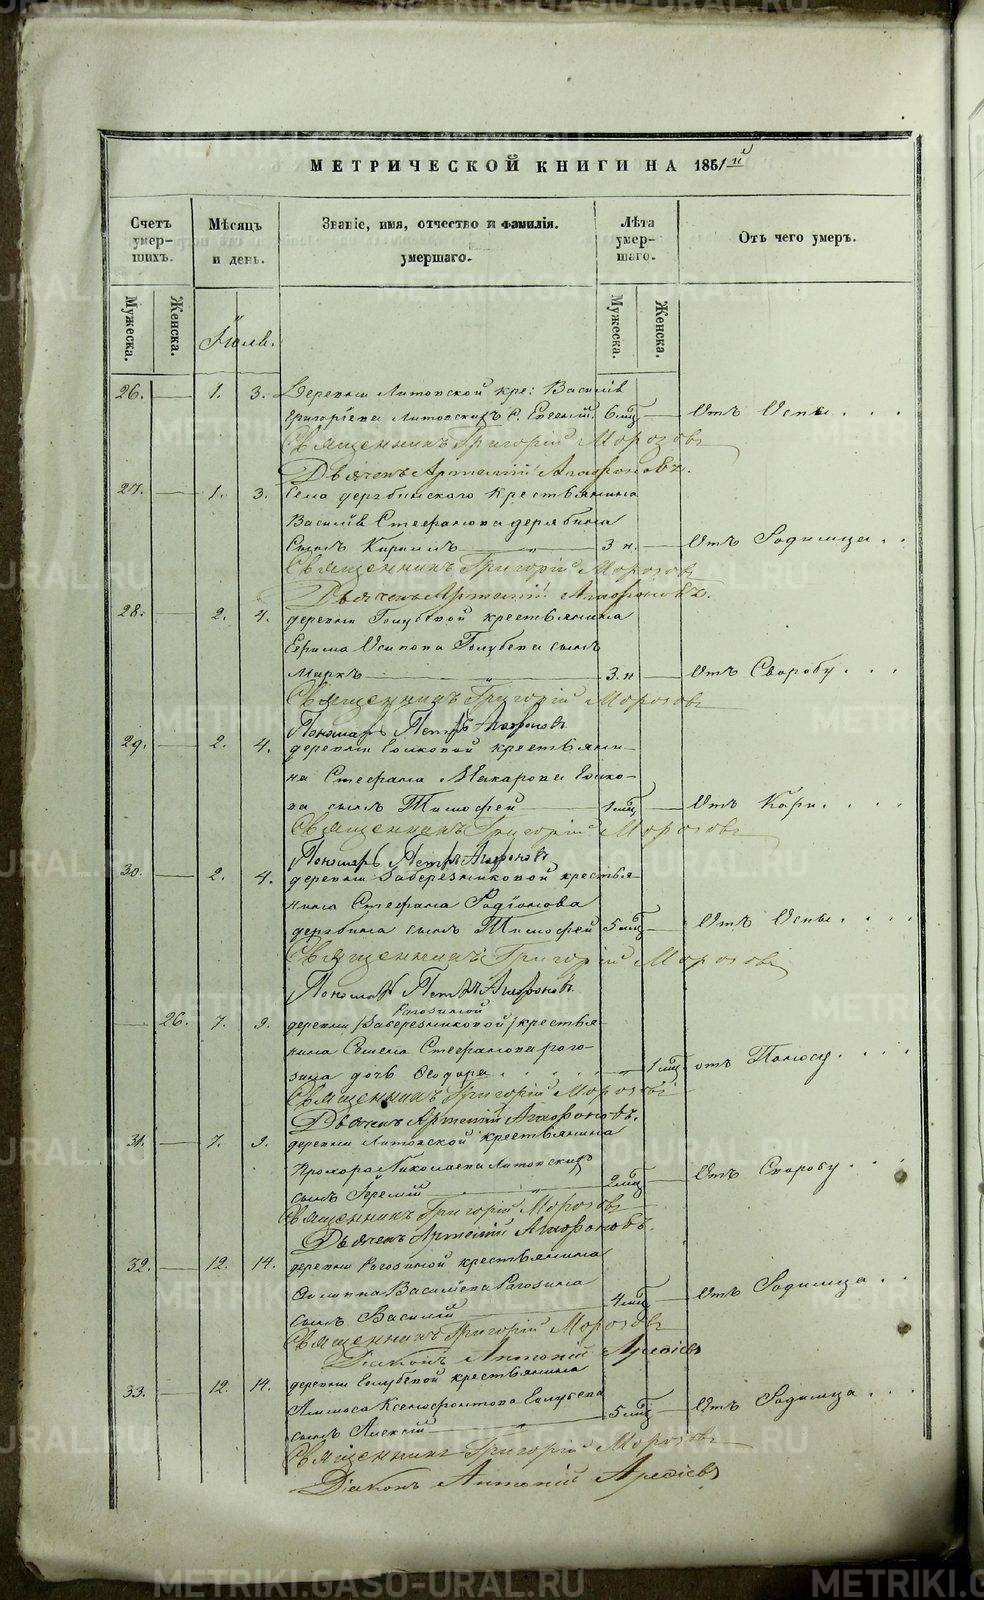 МЕТРИЧЕСКОЙ КНИГИ НА 1851й
Счетъ умер- шихъ.
Мѣсяцъ и день.
Званіе, имя, отчество и фамилія. умершаго.
Лѣта умер- шаго.
Отъ чего умеръ.
Мужеска. Женска. Мужеска. Женска.
Іюля.
26. 1. 3. Деревни Литовской кре: Василія
Григоріева Литовскихъ С. Евгеній. 6 мц Отъ Оспы
Священникъ Григорій Морозовъ
Дьячекъ Артемій Агафоновъ.
27. 1. 3. Села дерябинского Крестьянина
Василія Стефанова дерябина
Сынъ Кирилъ 3 н. Отъ Родимца
Священникъ Григорій Морозовъ
Дьячекъ Артемій Агафоновъ.
28. 2. 4. деревни Голубевой крестьянина
Осипова Голубева сынъ
Маркъ 3. н Отъ
Священникъ Григорій Морозовъ
Пономарь Петръ Агафоновъ
29. 2. 4. деревни крестьяни-
на Стефана Макарова
ва сынъ Тимофей 1 мц Отъ Кори
Священникъ Григорій Морозовъ
Пономарь Петръ Агафоновъ
30. 2. 4. деревни Заберезниковой крестья-
нина Стефана Родіонова
дерябина сынъ Тимофей 5 мц Отъ Оспы
Священникъ Григорій Морозовъ
Пономарь Петръ Агафоновъ
Рагозиной
26. 7. 9. деревни (Заберезниковой) крестья-
нина Семена Стефанова рого-
зина дочь Ѳеодора 1 мц отъ Поносу
Священникъ Григорій Морозовъ
Дьячекъ Артемій Агафоновъ.
31. 7. 9. деревни Литовской крестьянина
Прохора Николаева Литовскихъ
сынъ Іеремій 2 мц Отъ
Священникъ Григорій Морозовъ
Дьячекъ Артемій Агафоновъ.
32. 12. 14. деревни Рогозиной крестьянина
Филиппа Васильева Рагозина
сынъ Василій 4 мц Отъ Родимца
Священникъ Григорій Морозовъ
Діаконъ Антоній
33. 12. 14. деревни Голубевой крестьянина
Ксенофонтова Голубева
сынъ Алексій 5 мц Отъ Родимца
Священникъ Григорій Морозовъ
Діаконъ Антоній
METRIKI.GASO-URAL.RU